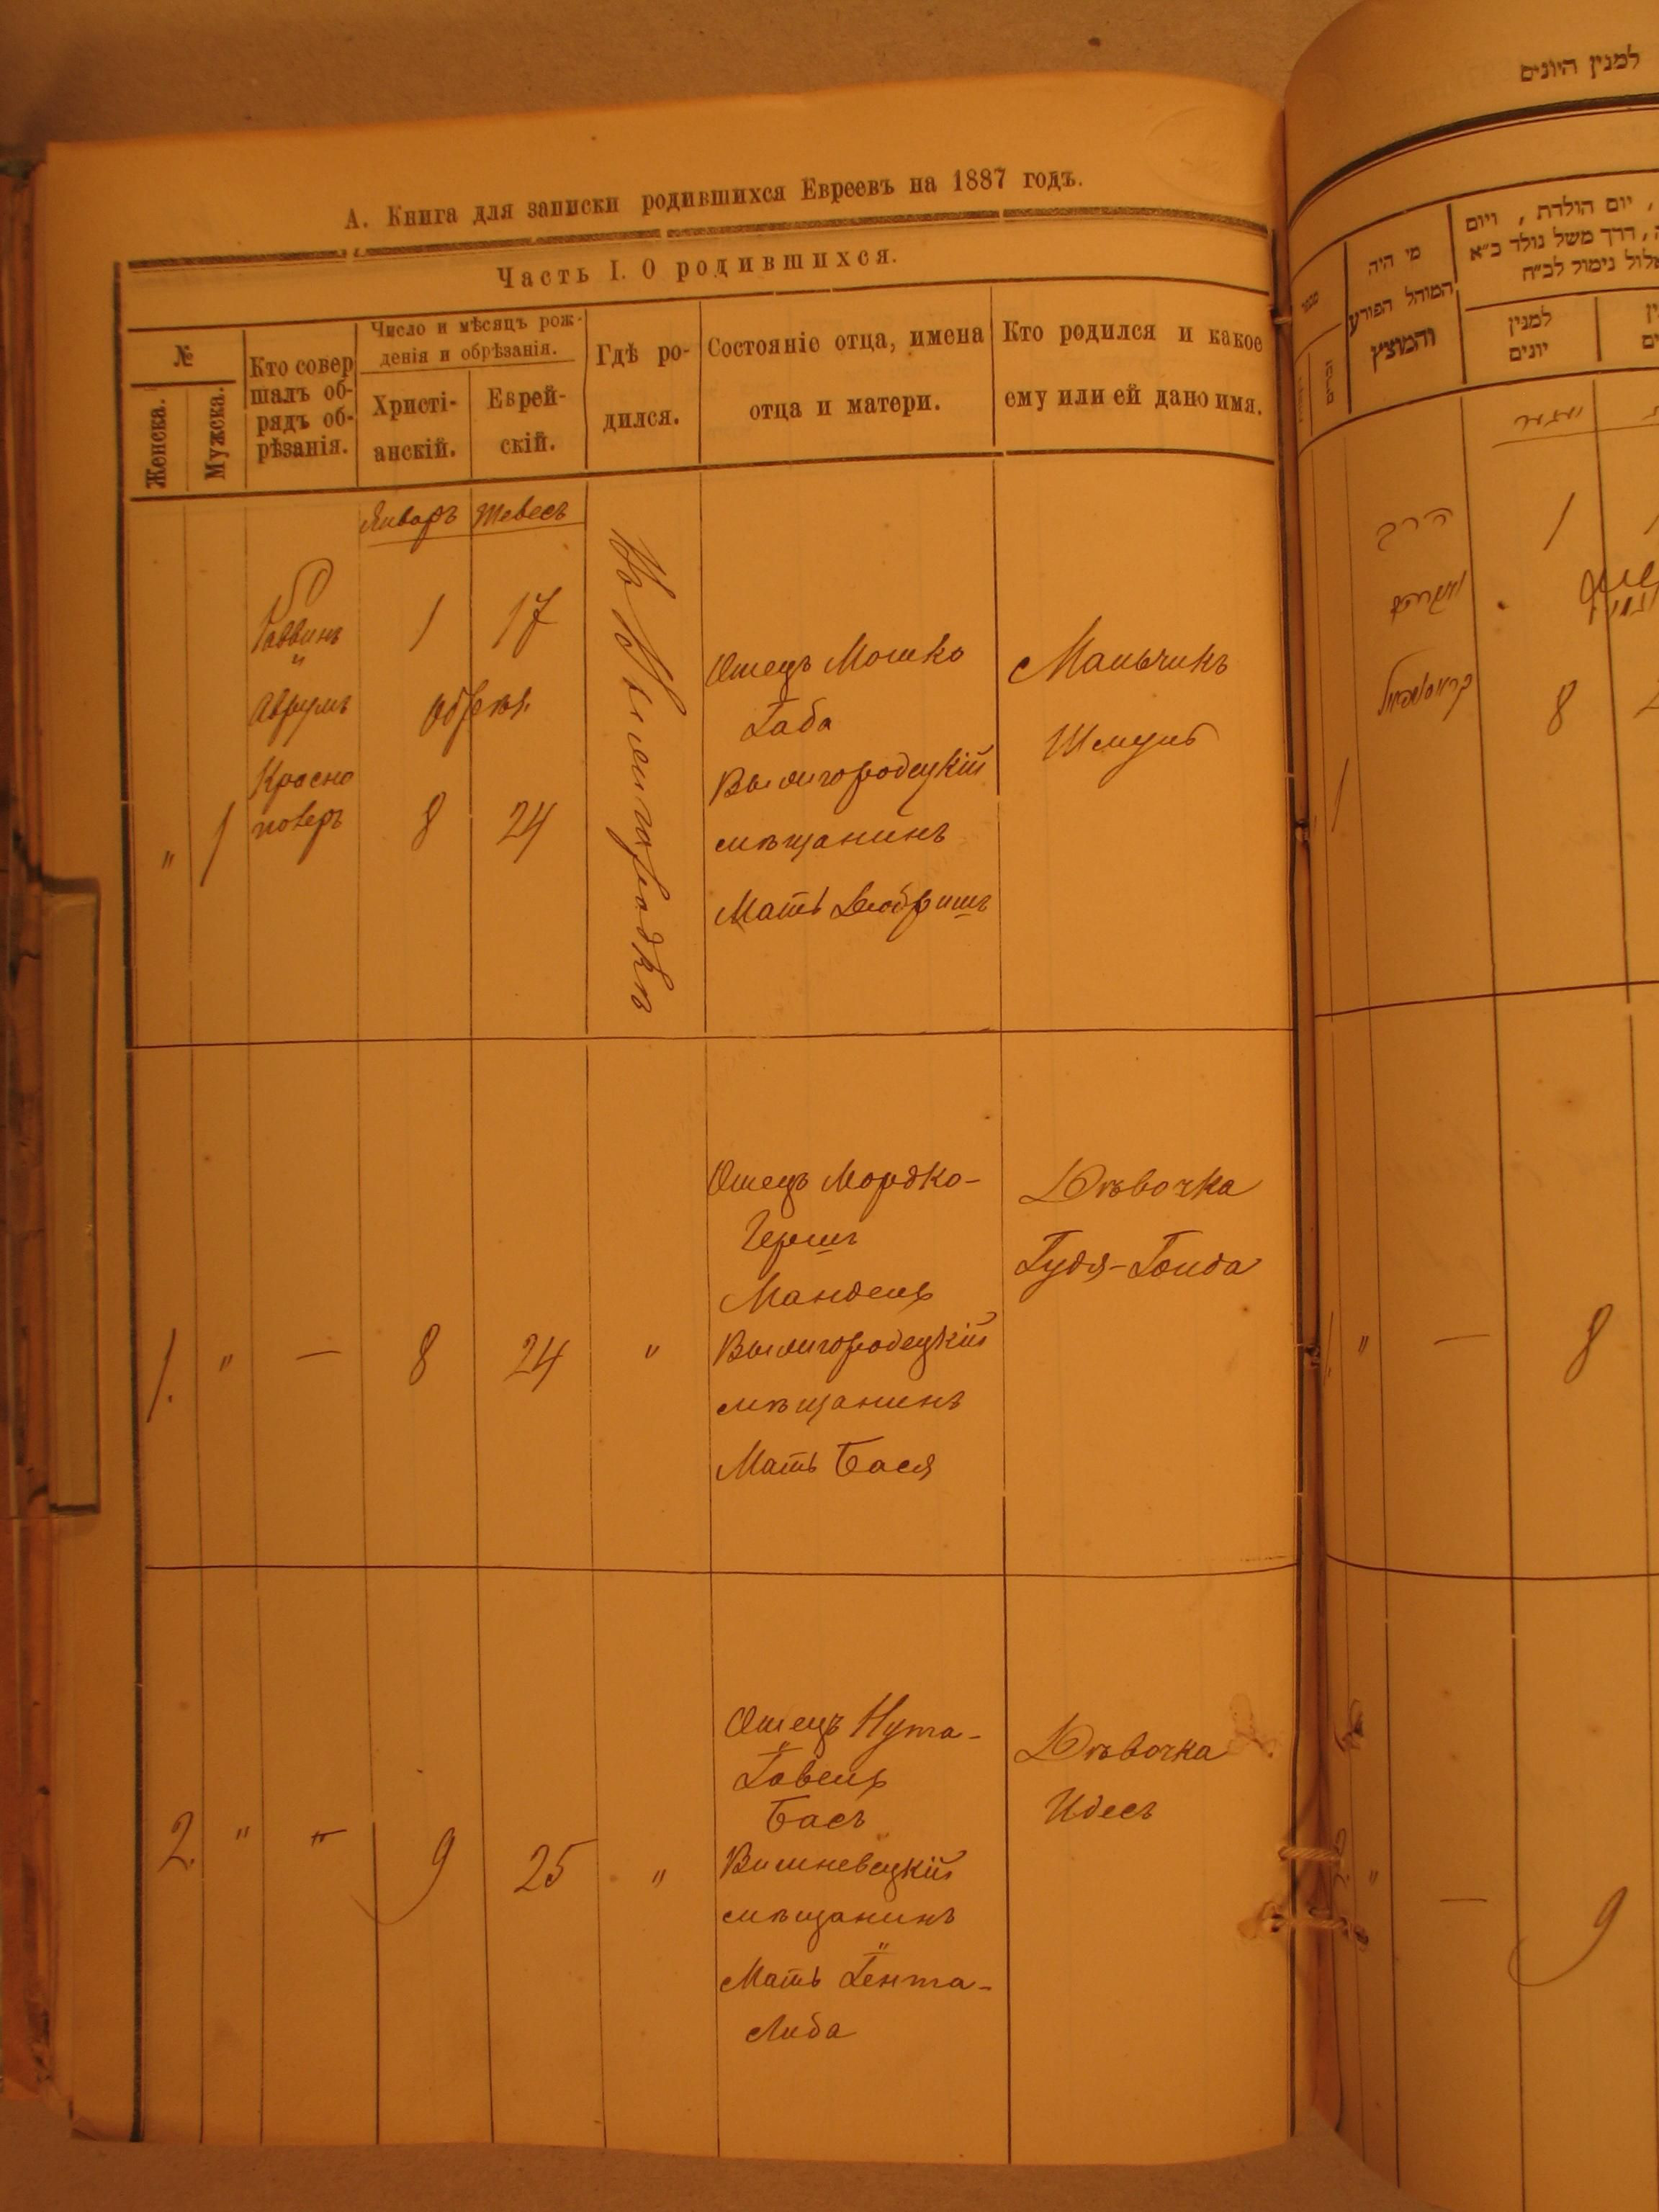 А. Книга для записки родившихся Евреевъ на 1887 годъ.
Часть I. О родившихся.
№
Женска.
Мужска.
Кто совер
шалъ об-
рядъ об-
рѣзанія.
Число и мѣсяцъ рож-
денія и обрѣзанія.
Христі-
анскій.
Еврей-
скій.
Гдѣ ро-
дился.
Состояніе отца, имена
отца и матери.
Кто родился и какое
ему или ей дано имя.
Январь Тевесъ
" 1
Раввинъ
и
Аврумъ
Красно
поверъ
1 17
обрѣз.
8 24
Отецъ Мошко
Габа
Вышгородецкій
мѣщанинъ
Мать
Мальчикъ
Шмуль
1. " — 8 24 "
Отецъ Мордко-
Гершъ
Мандель
Вышгородецкій
мѣщанинъ
Мать Бася
Дѣвочка
Гудя-Гольда
2. " — 9 25 "
Отецъ Нута-
Басъ
Вишневецкій
мѣщанинъ
Мать Гента-
Либа
Дѣвочка
Идесъ
למנין היונים
, יום הולדת , ויום
דרך משל נולד כ״א
אלול נימול לכ״ח
מי היה
המוהל הפורע
והמוצץ
למנין
יונים
הרב
1
8
1
1. " — 8
" — 9